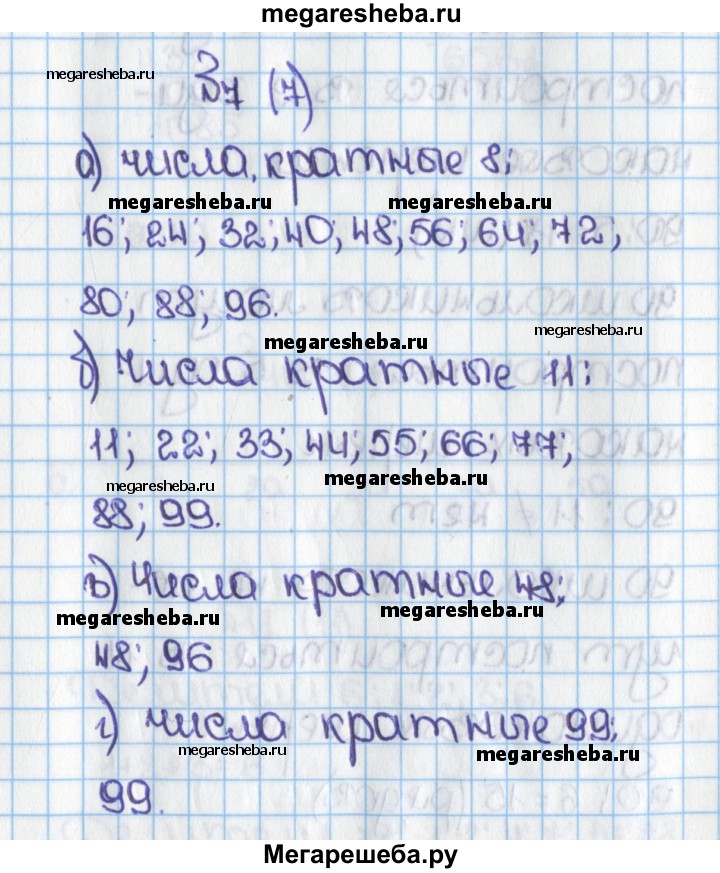 megaresheba.ru
megaresheba.ru
7 (7)
а) числа, кратные 8:
megaresheba.ru megaresheba.ru
16; 24; 32; 40; 48; 56; 64; 72;
80; 88; 96.
megaresheba.ru megaresheba.ru
б) числа кратные 11:
11; 22; 33; 44; 55; 66; 77;
megaresheba.ru megaresheba.ru
88; 99.
в) числа кратные 48:
megaresheba.ru megaresheba.ru
48; 96
г) числа кратные 99:
megaresheba.ru megaresheba.ru
99.
Мегарешеба.ру